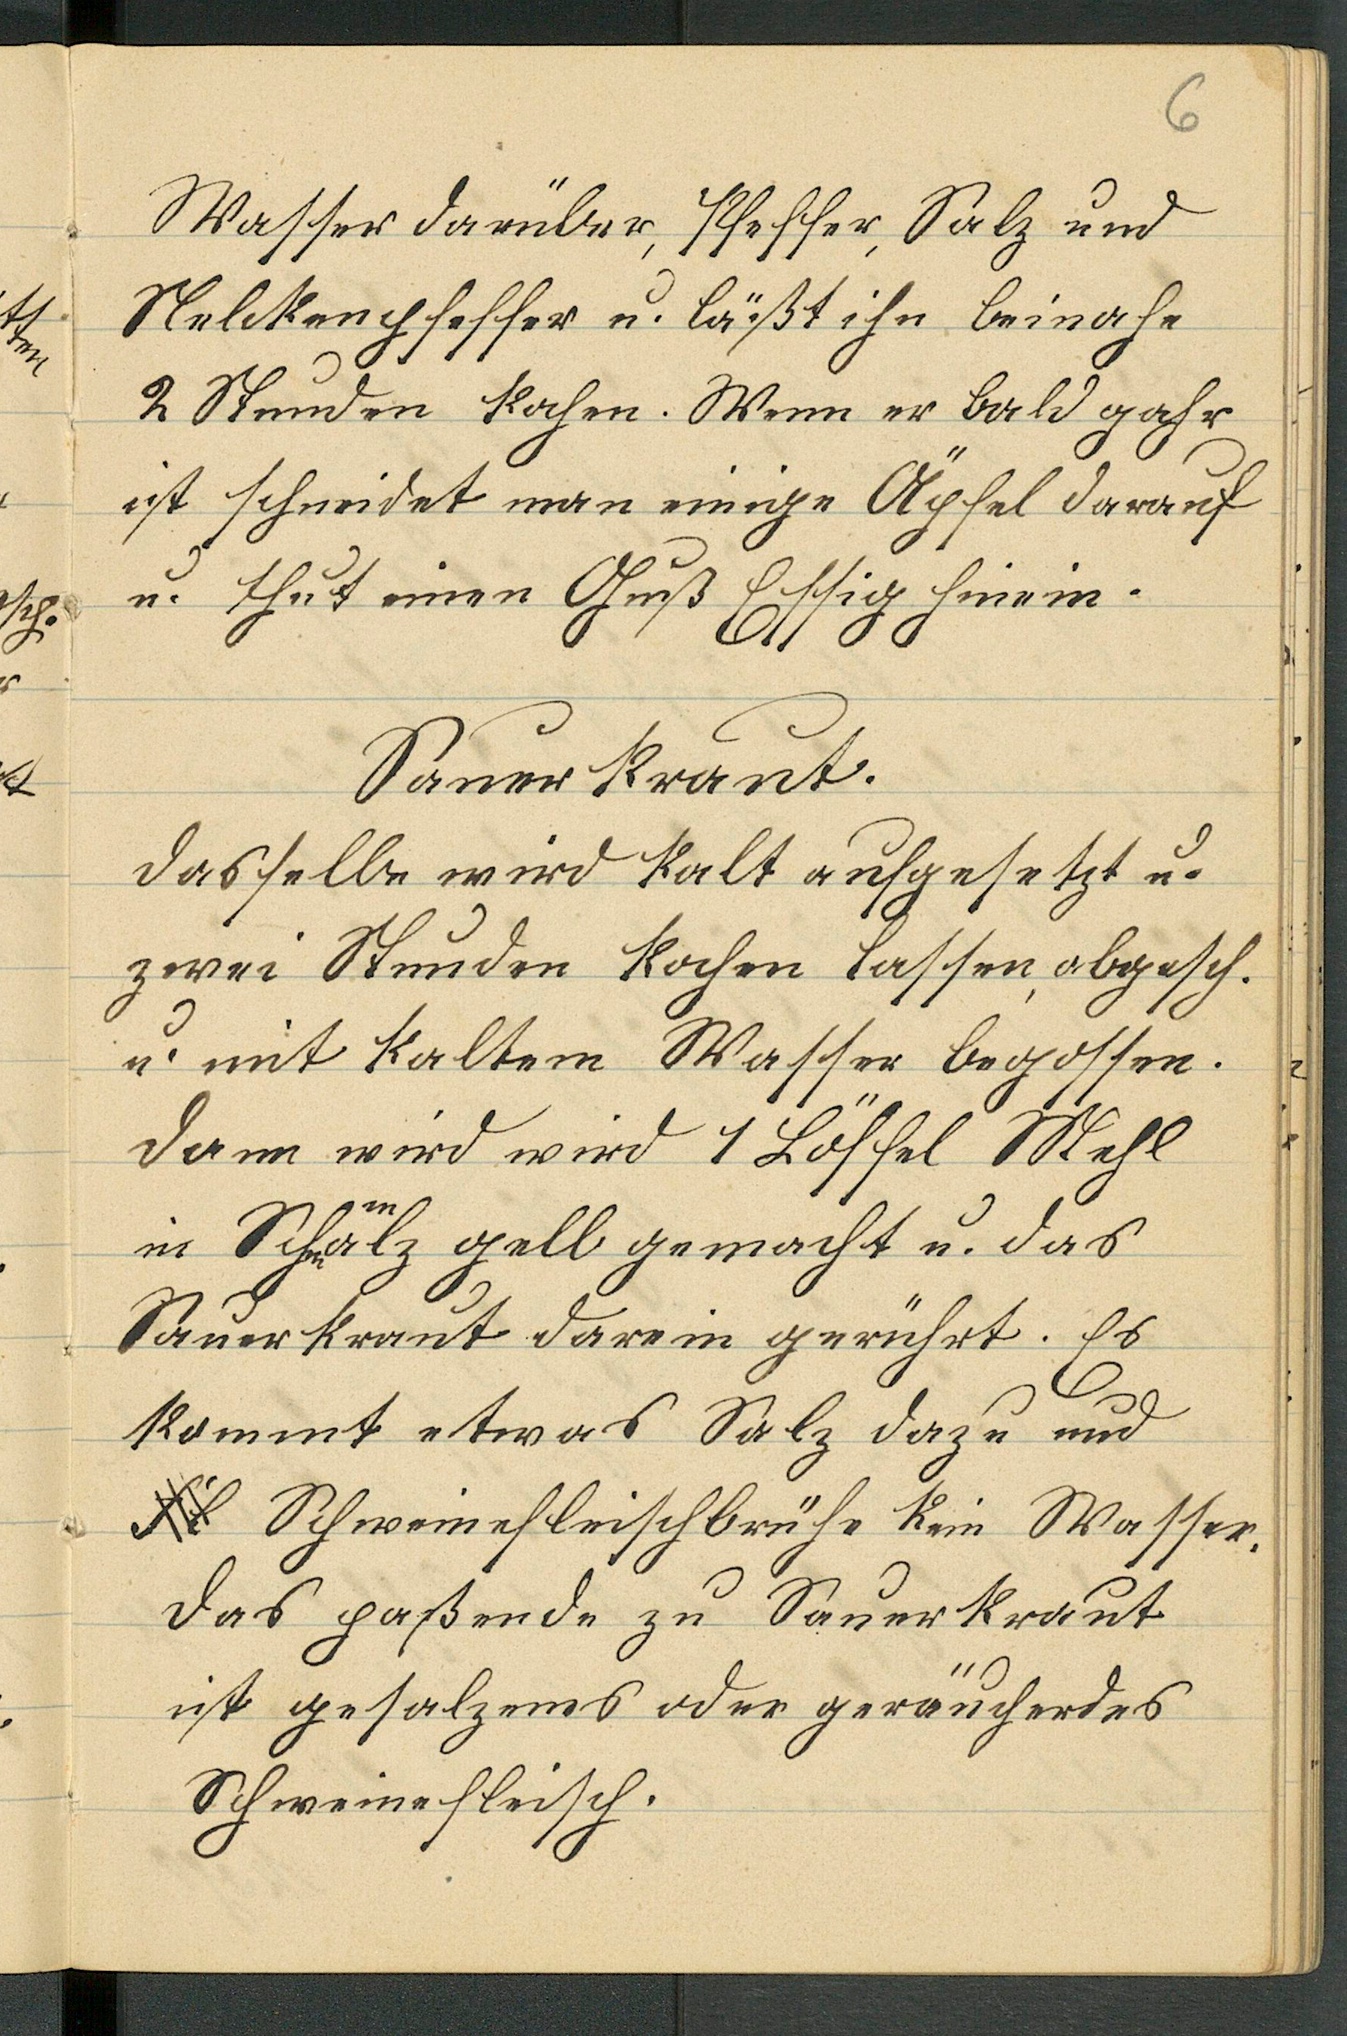 6
Wasser darüber, Pfeffer, Salz und
Nelkenpfeffer u. läßt ihn beinahe
2 Stunden kochen. Wenn er bald gahr
ist schneidet man einige Äpfel darauf
u. thut einen Guß Essig hinein.
Sauerkraut.
Dasselbe wird kalt aufgesetzt u.
zwei Stunden kochen lassen, abgesch.
u. mit kaltem Wasser begossen.
Dann wird wird 1 Löffel Mehl
in Schmalz gelb gemacht u. das
Sauerkraut darein gerührt. Es
kommt etwas Salz dazu und
Schweinefleischbrühe kein Wasser.
Das paßende zu Sauerkraut
ist gesalzenes oder geräucherdes
Schweinefleisch.